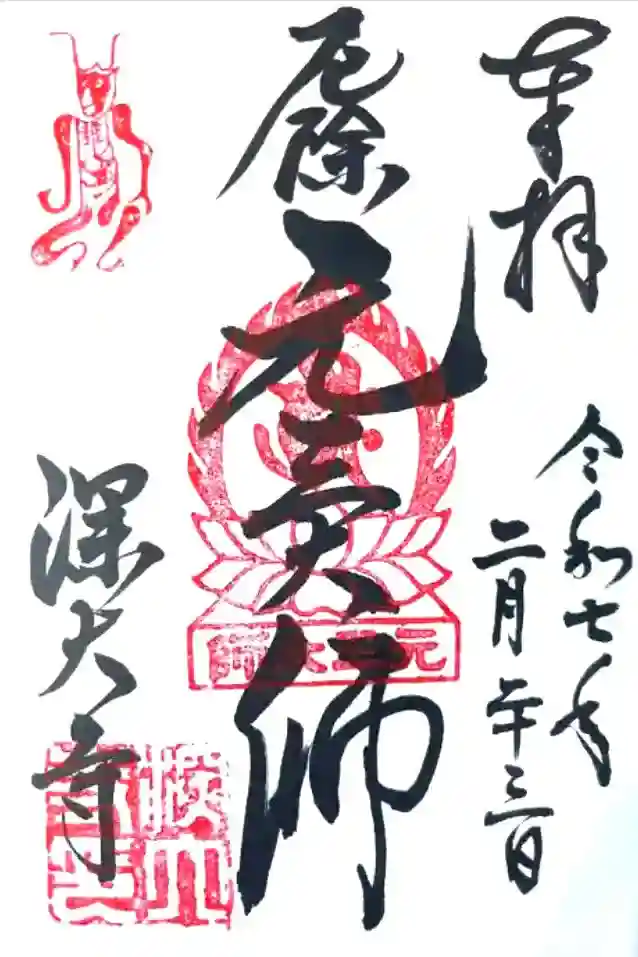 奉拝
令和七年
二月二十三日
厄除
元三大師
元三大師
深大寺